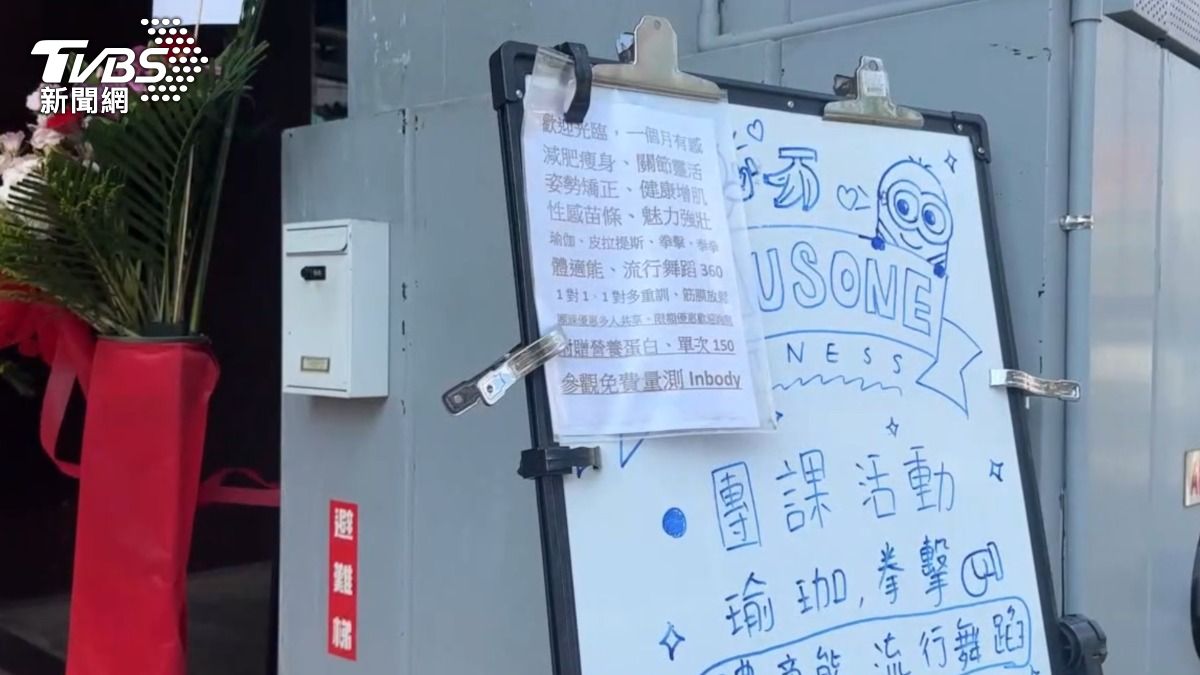 TVBS
新聞網
歡迎光臨，一個月有感
減肥瘦身、關節靈活
姿勢矯正、健康增肌
性感苗條、魅力強壯
瑜伽、皮拉提斯、拳擊、拳拳
體適能、流行舞蹈 360
1 對 1、1 對多重訓、筋膜放鬆
團課優惠多人共享、限期優惠歡迎詢問
附贈營養蛋白、單次 150
參觀免費量測 Inbody
USONE
NESS
團課活動
瑜珈,拳擊
體適能 流行舞蹈
避難梯